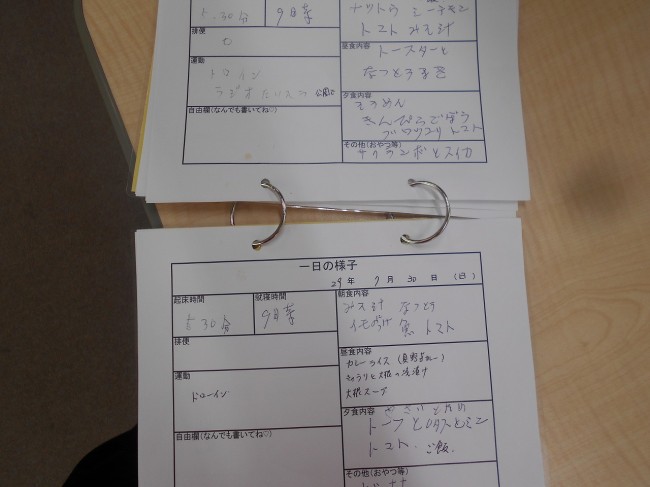 5.30分
9日寺
ナットウ
トマト みそ汁
排便
昼食内容
トースターと
なっとうまき
運動
ドローイン
ラジオたいそう 公園で
夕食内容
そうめん
きんぴらごぼう
ブロッコリ トマト
自由欄(なんでも書いてね♡)
その他(おやつ等)
サクランボとスイカ
一日の様子
29 年 7 月 30 日 (日)
起床時間
就寝時間
朝食内容
5.30分
9日寺
みそ汁 なっとう
魚 トマト
排便
昼食内容
カレーライス
きゅうりと大根の浅漬け
大根スープ
運動
ドローイン
夕食内容
トマト ご飯
自由欄(なんでも書いてね♡)
その他(おやつ等)